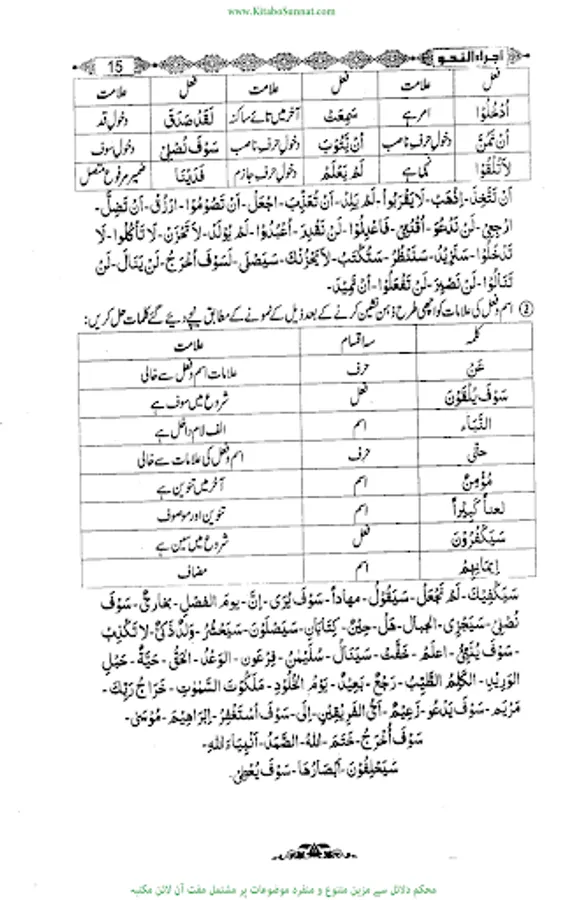 www.KitaboSunnat.com
اجراء النحو 15
فعل علامت فعل علامت فعل علامت
اُدْخُلُوْا امر ہے سَمِعَتْ آخر میں تائے ساکنہ لَقَدْ صَدَقَ دخول قد
اَنْ تَمُنَّ دخول حرف ناصب اَنْ يَّتُوْبَ دخول حرف ناصب سَوْفَ نُصْلِيْ دخول سوف
لَا تُلْقُوْا نہی ہے لَمْ يَعْلَمْ دخول حرف جازم فَدَيْنَا ضمیر مرفوع متصل
اَنْ تَتَّخِذَ۔ اِذْهَبْ۔ لَا يَقْرَبُوْا۔ لَمْ يَلِدْ۔ اَنْ تُعَذِّبَ۔ اِجْعَلْ۔ اَنْ تَصُوْمُوْا۔ اُرْزُقْ۔ اَنْ تَضِلَّ۔
اِرْجِعِيْ۔ لَنْ نَدْعُوَ۔ اُقْنُتِيْ۔ فَاعْدِلُوْا۔ لَنْ نَقْدِرَ۔ اُعْبُدُوْا۔ لَمْ يُوْلَدْ۔ لَا تَحْزَنْ۔ لَا تَأْكُلُوْا۔ لَا
تَدْخُلُوْا۔ سَنَزِيْدُ۔ سَنَنْظُرُ۔ سَتُكْتَبُ۔ لَا يَحْزُنْكَ۔ سَيَصْلٰى۔ لَسَوْفَ اُخْرَجُ۔ لَنْ يَنَالَ۔ لَنْ
تَنَالُوْا۔ لَنْ نَصْبِرَ۔ لَنْ تَفْعَلُوْا۔ اَنْ تَمِيْدَ۔
② اسم و فعل کی علامات کو اچھی طرح ذہن نشین کرنے کے بعد ذیل کے نمونے کے مطابق نیچے دیے گئے کلمات حل کریں:
کلمہ سہ اقسام علامت
عَنْ حرف علامات اسم و فعل سے خالی
سَوْفَ يَلْقَوْنَ فعل شروع میں سوف ہے
النَّبَاءِ اسم الف لام داخل ہے
حتّٰى حرف اسم و فعل کی علامات سے خالی
مُؤْمِنٌ اسم آخر میں تنوین ہے
لَعْناً كَبِيْراً اسم تنوین اور موصوف
سَيَكْفُرُوْنَ فعل شروع میں سین ہے
اِيْمَانِهِمْ اسم مضاف
سَيَكْفِيْكَ۔ لَمْ نَجْعَلْ۔ سَيَقُوْلُ۔ مِهَاداً۔ سَوْفَ يُرٰى۔ اِنَّ۔ يَوْمَ الْفَصْلِ۔ بُخَارِيٌّ۔ سَوْفَ
نُصْلِيْ۔ سَيَجْزِي۔ الْجِبَالُ۔ هَلْ۔ حِيْنٌ۔ كِتَابَانِ۔ سَيَصْلَوْنَ۔ سَيَحْشُرُ۔ وَلَدٌ ذَكِيٌّ۔ لَا تَكْذِبْ
۔ سَوْفَ يُنَبِّئُ۔ اِعْلَمْ۔ خَفَّتْ۔ سَيَنَالُ۔ سُلَيْمٰنُ۔ فِرْعَوْنَ۔ الْوَعْدُ۔ الْحَقُّ۔ حَيَّةٌ۔ حَبْلِ
الْوَرِيْدِ۔ الْكَلِمُ الطَّيِّبُ۔ رَجْعٌ۔ بَعِيْدٌ۔ يَوْمُ الْخُلُوْدِ۔ مَلَكُوْتَ السَّمٰوٰتِ۔ خَرَاجُ رَبِّكَ۔
مَرْيَمَ۔ سَوْفَ يَدْعُو۔ زَعِيْمٌ۔ اَيُّ الْفَرِيْقَيْنِ۔ اِلٰى۔ سَوْفَ اَسْتَغْفِرُ۔ اِبْرَاهِيْمَ۔ مُوْسٰى۔
سَوْفَ اُخْرَجُ۔ خَتَمَ۔ اللهُ۔ الصَّمَدُ۔ اَنْبِيَاءَ اللهِ۔
سَيَحْلِفُوْنَ۔ اَبْصَارُهَا۔ سَوْفَ يُعْطِيْ۔
محکم دلائل سے مزین متنوع و منفرد موضوعات پر مشتمل مفت آن لائن مکتبہ